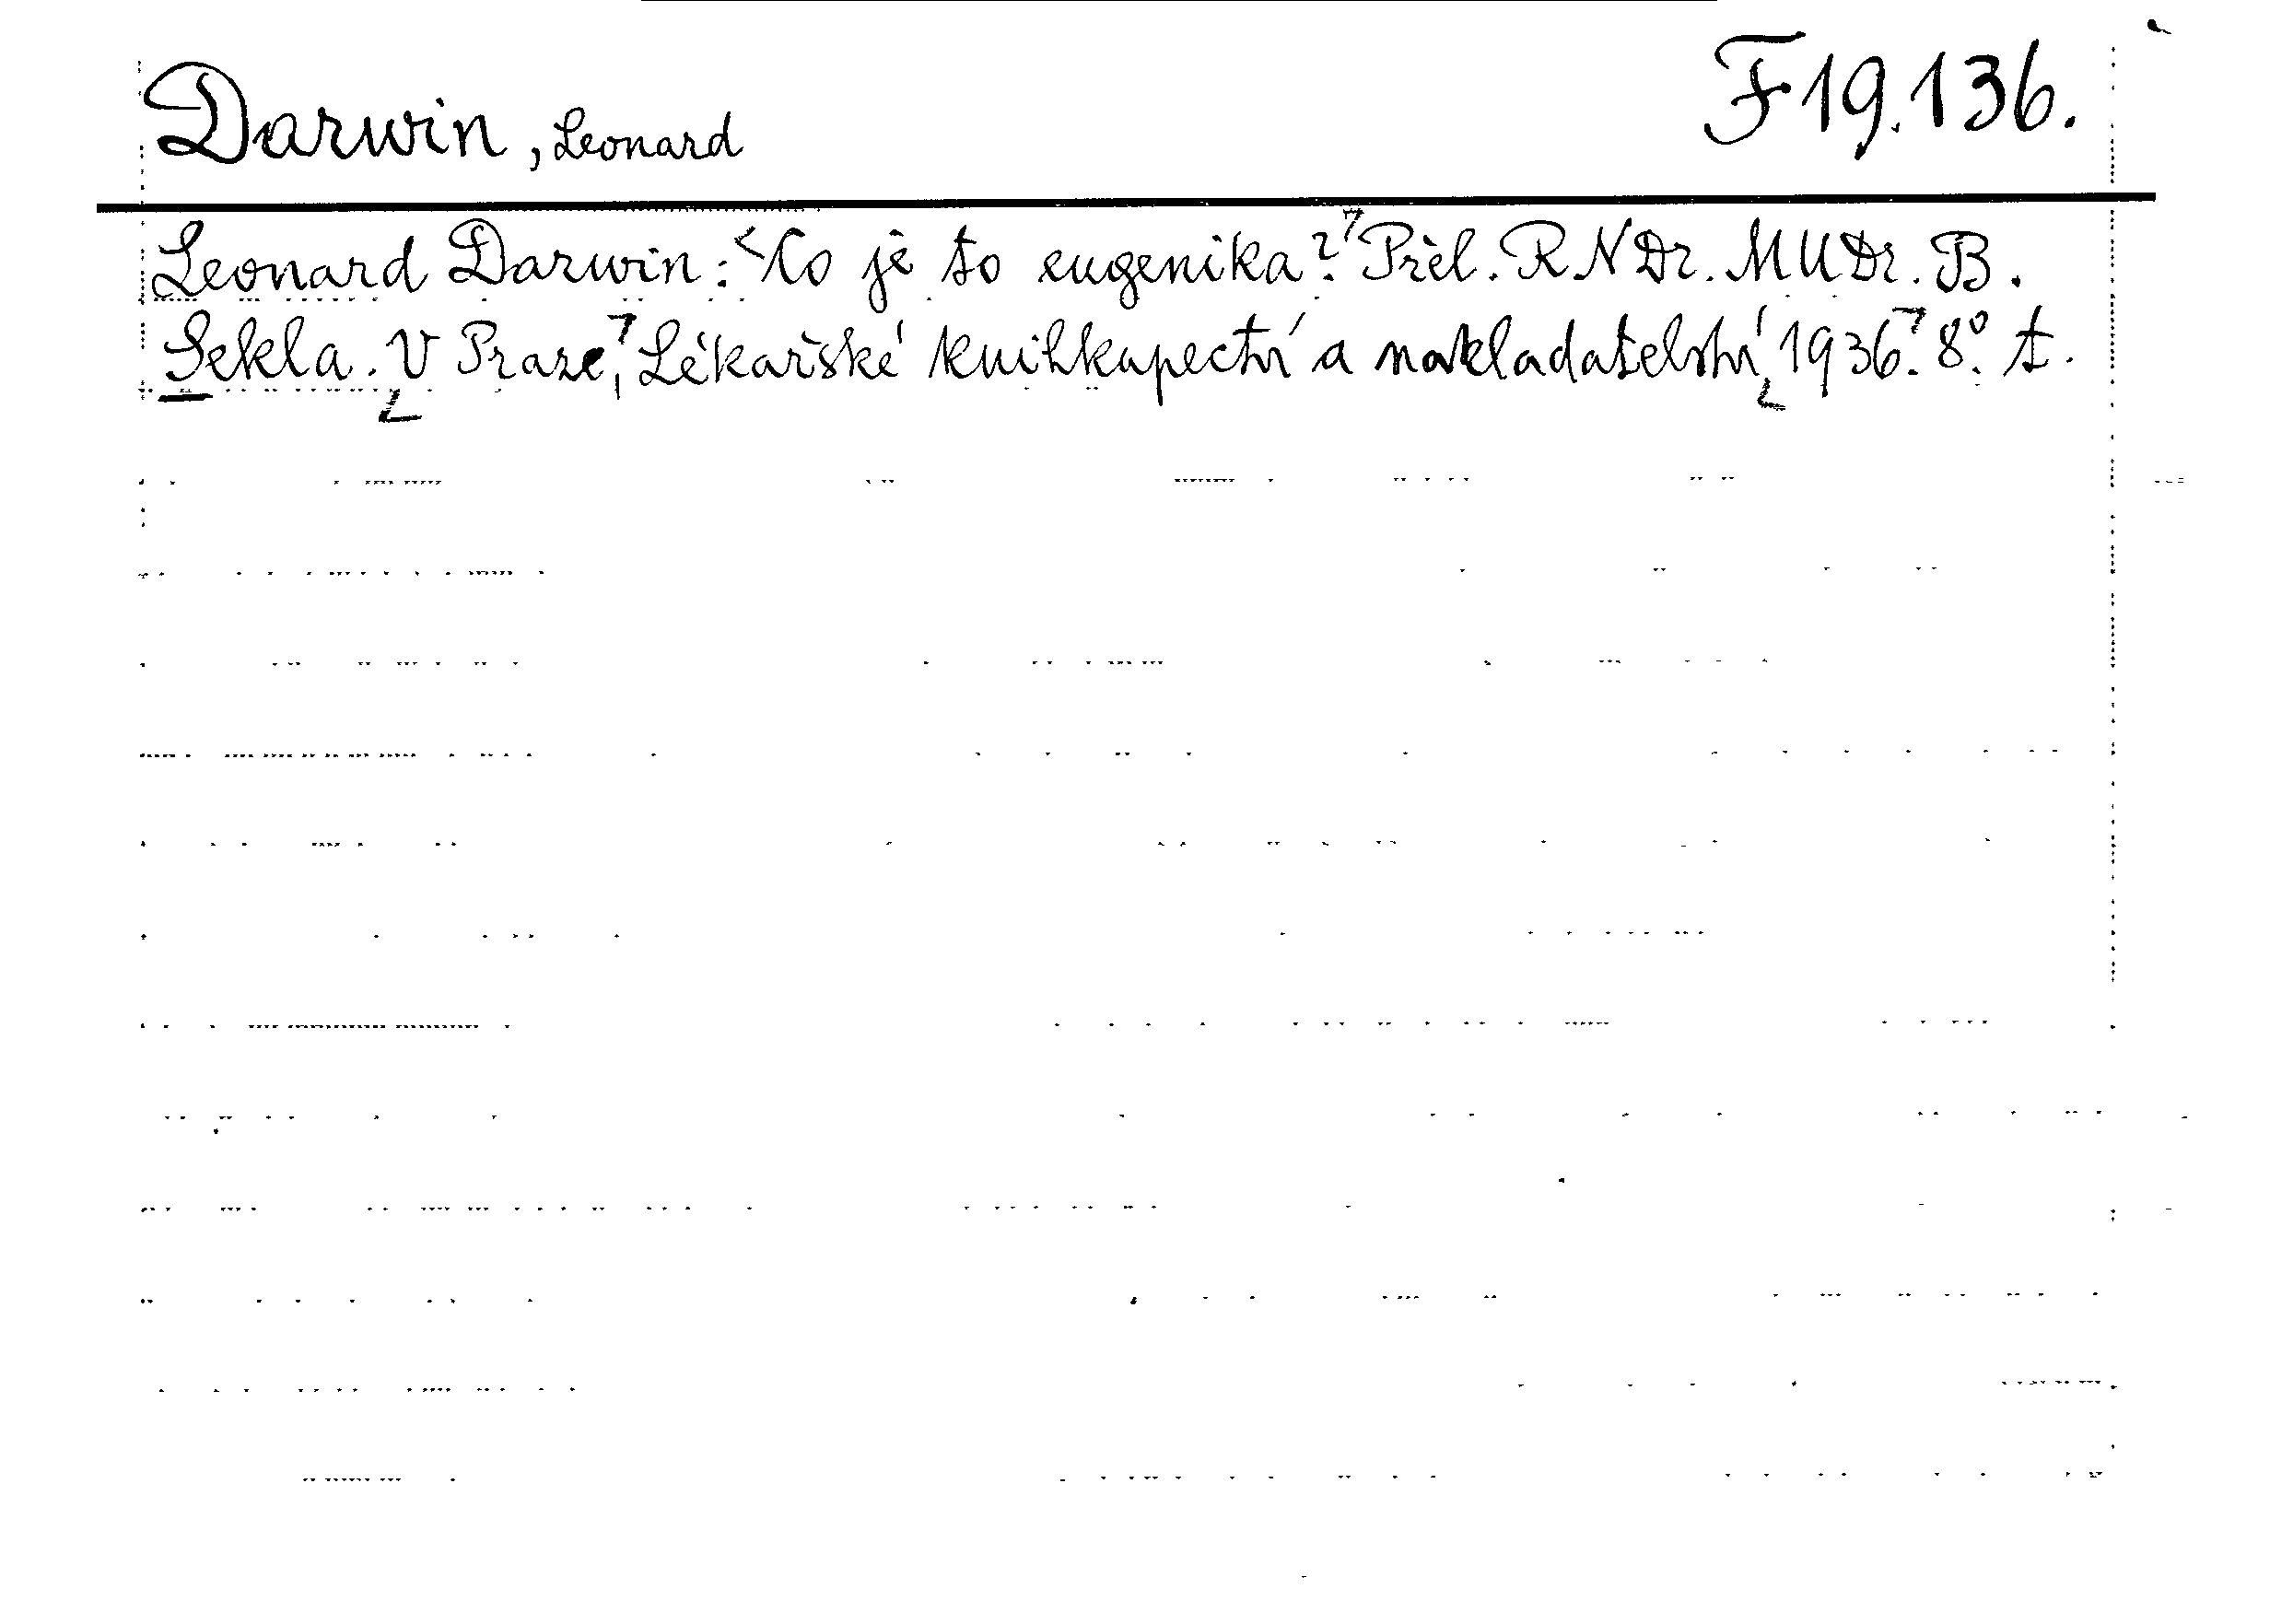 Darwin, Leonard
F19.136.
Leonard Darwin: Co je to eugenika? Přel. RNDr. MUDr. B.
Sekla. V Praze, Lékařské knihkupectví a nakladatelství, 1936. 8°. t.